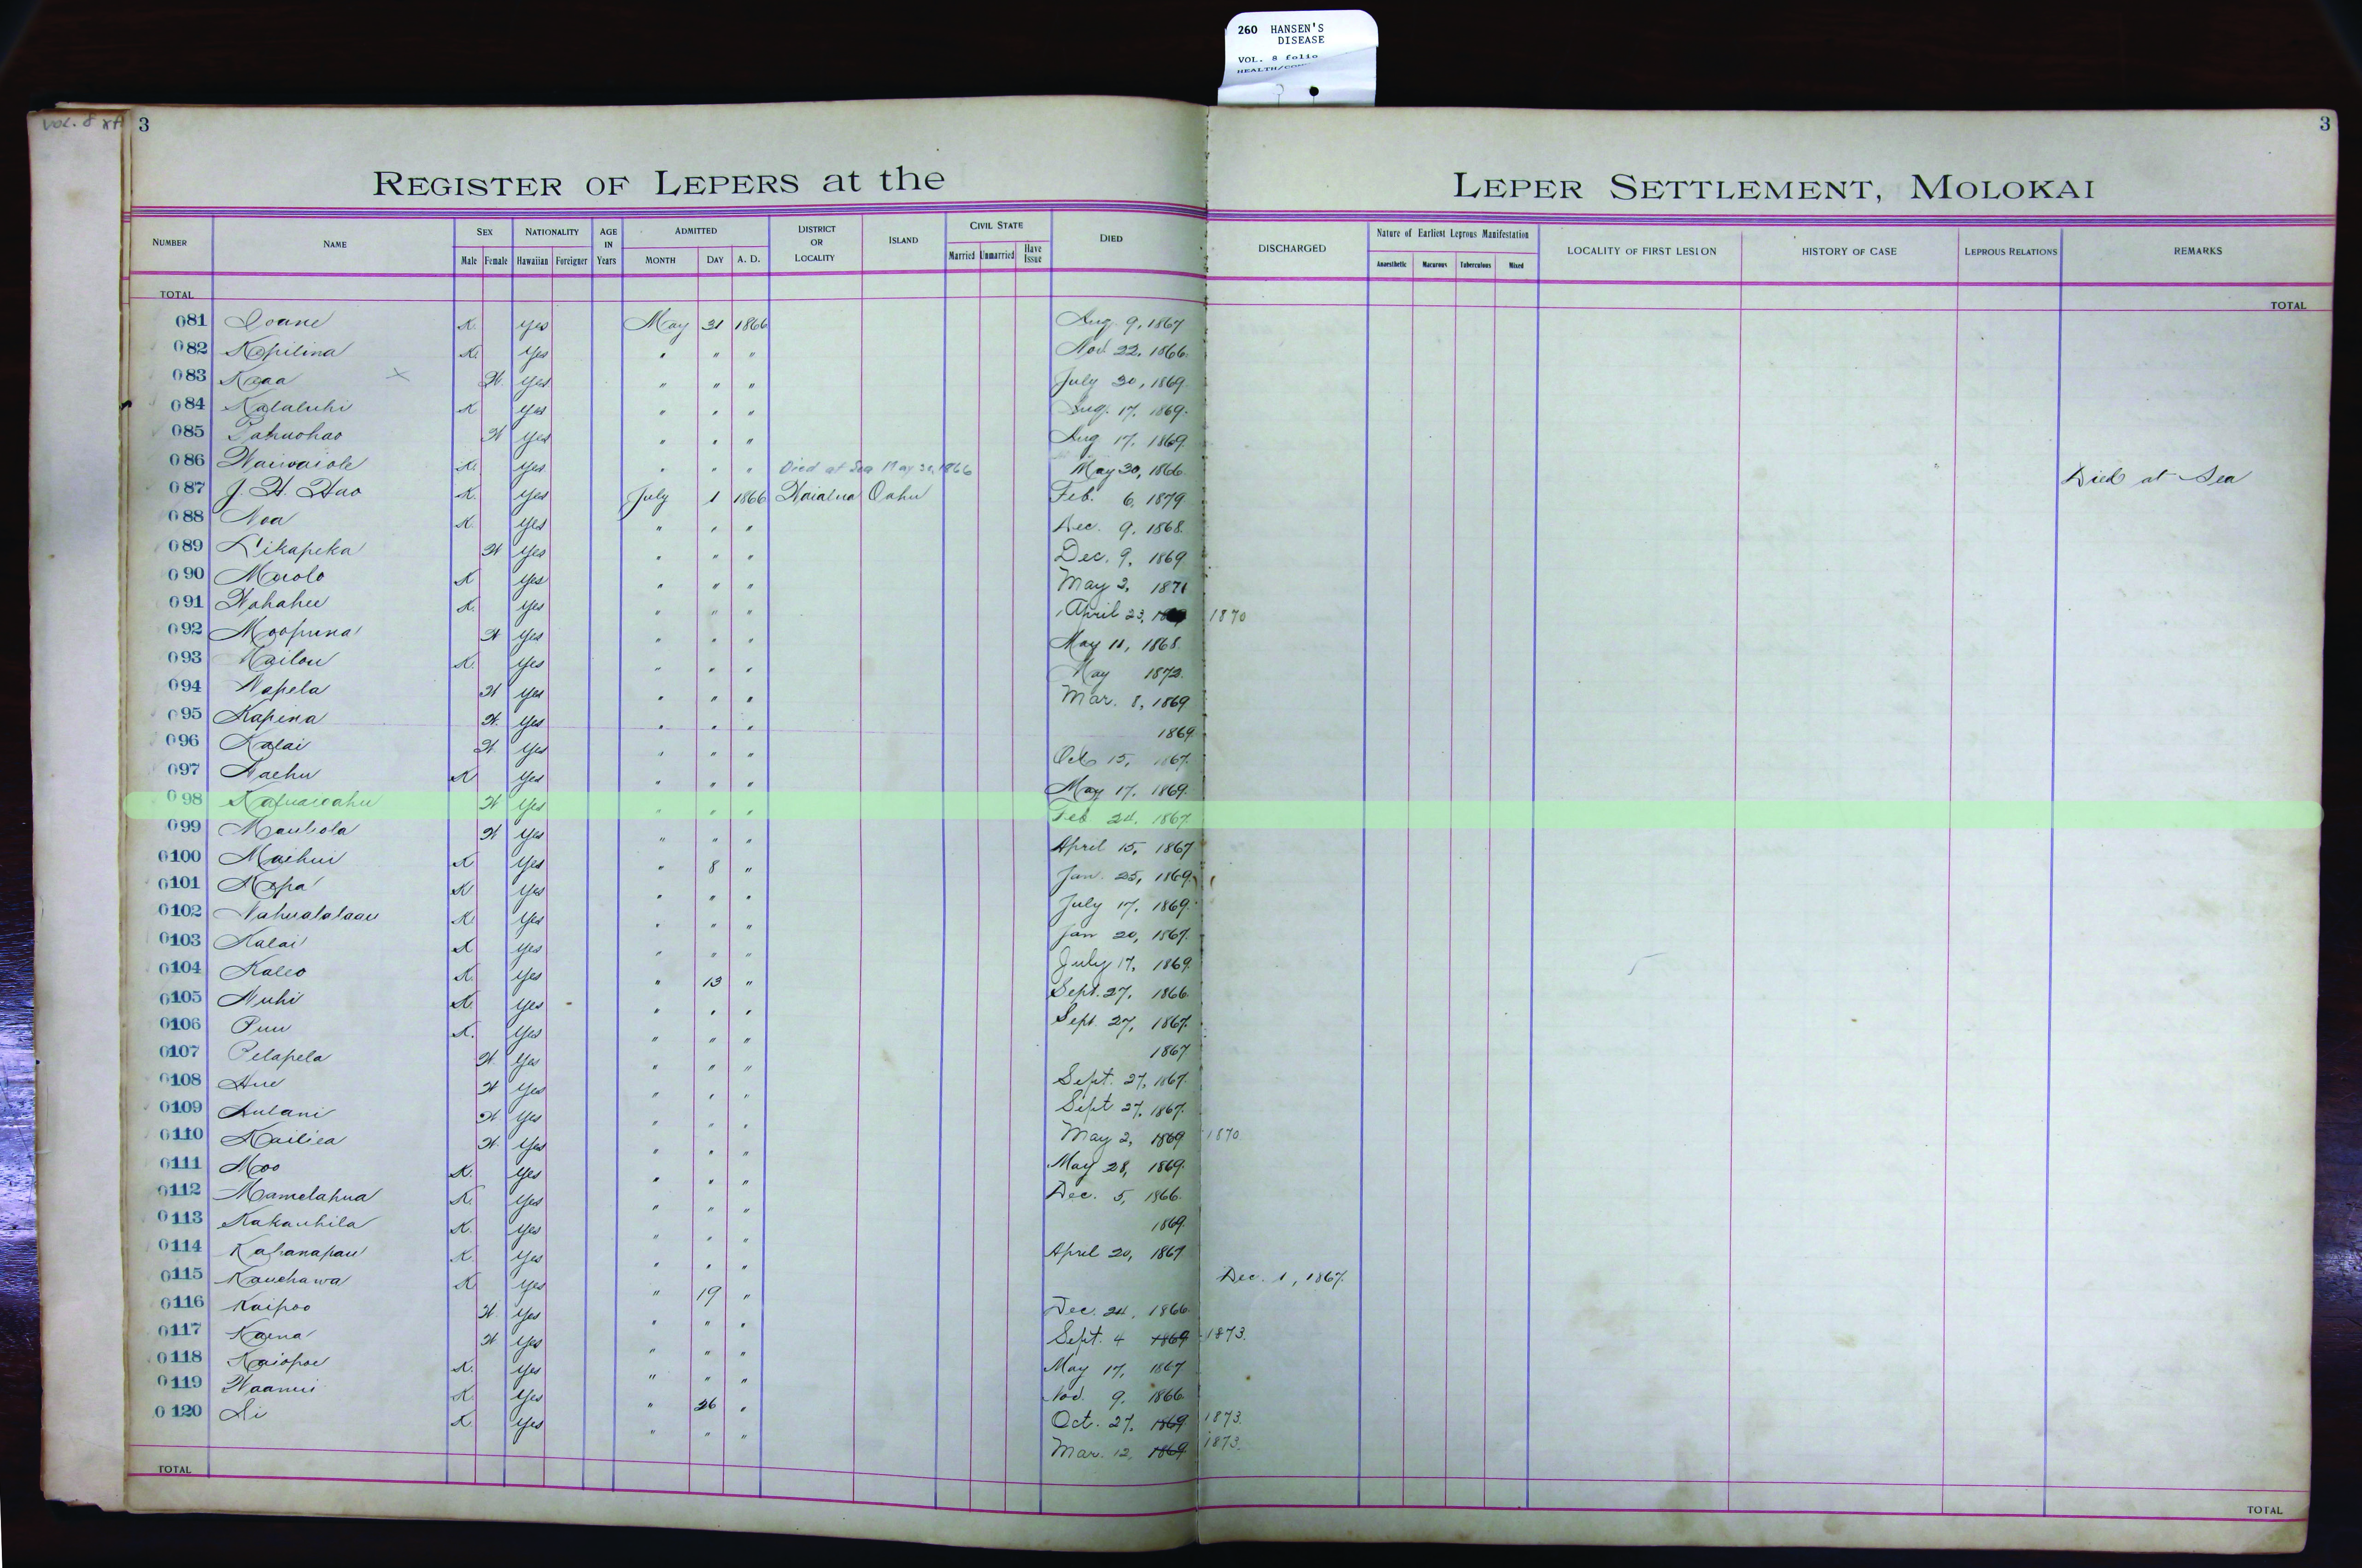 260 HANSEN'S
DISEASE
VOL. 8 folio
VOL. 8
3
3
REGISTER OF LEPERS at the LEPER SETTLEMENT, MOLOKAI
NUMBER NAME SEX NATIONALITY AGE IN Years ADMITTED DISTRICT OR LOCALITY ISLAND CIVIL STATE DIED DISCHARGED Nature of Earliest Leprous Manifestation LOCALITY OF FIRST LESION HISTORY OF CASE LEPROUS RELATIONS REMARKS
Male Female Hawaiian Foreigner MONTH DAY A. D. Married Unmarried Have Issue Anaesthetic Macurous Tuberculous Mixed
TOTAL TOTAL
081 Ioane K. yes May 31 1866 Aug. 9, 1867
082 Kapilina K. yes " " " Nov. 22, 1866.
083 Kaaa × W. yes " " " July 30, 1869.
084 Kalaluhi K yes " " " Aug. 17, 1869.
085 Pahuohao W yes " " " Aug 17, 1869.
086 Waiwaiole K. yes " " " Died at Sea May 30, 1866 May 30, 1866. Died at Sea
087 J. H. Hao K. yes July 1 1866 Waialua Oahu Feb. 6, 1879
088 Noa K. yes " " " Dec. 9, 1868.
089 Likapeka W yes " " " Dec. 9, 1869.
090 Maolo K yes " " " May 2, 1871
091 Wahahee K. yes " " " April 23, 1870
092 Moopuna W yes " " " May 11, 1868.
093 Kailou K. yes " " " May 1872.
094 Napela W yes " " " Mar. 8, 1869
095 Kapina W. yes " " " 1869.
096 Kalai W. yes " " " Oct 15, 1867.
097 Naehu K yes " " " May 17, 1869.
098 W yes " " " Feb 24, 1867.
099 Mauliola W yes " " " April 15, 1867
0100 Maihui K yes " 8 " Jan. 25, 1869.
0101 Mopa K yes " " " July 17, 1869.
0102 Nahualalaau K. yes " " " Jan 20, 1867.
0103 Kalai K yes " " " July 17, 1869.
0104 Kaleo K. yes " 13 " Sept. 27, 1866.
0105 Nuhi K. yes " " " Sept. 27, 1867.
0106 Puu K. yes " " " 1867
0107 Pelapela W. yes " " " Sept. 27, 1867.
0108 Hue W yes " " " Sept 27, 1867.
0109 Aulani W. yes " " " May 2, 1869 1870.
0110 Kailiea W. yes " " " May 28, 1869.
0111 Moo K. yes " " " Dec. 5, 1866.
0112 Mamelahua K. yes " " " 1869.
0113 Kakauhila K. yes " " " April 20, 1867
0114 Kahanapau K. yes " " " Dec. 1, 1867.
0115 Kauehawa K. yes " 19 " Dec. 24, 1866.
0116 Kaipoo W. yes " " " Sept. 4 1869 1873.
0117 Kaena W yes " " " May 17, 1867
0118 Kaiopoe K. yes " " " Nov. 9, 1866.
0119 Waanui K. yes " 26 " Oct. 27, 1869 1873.
0120 Li K. yes " " " Mar. 12, 1869 1873.
TOTAL TOTAL